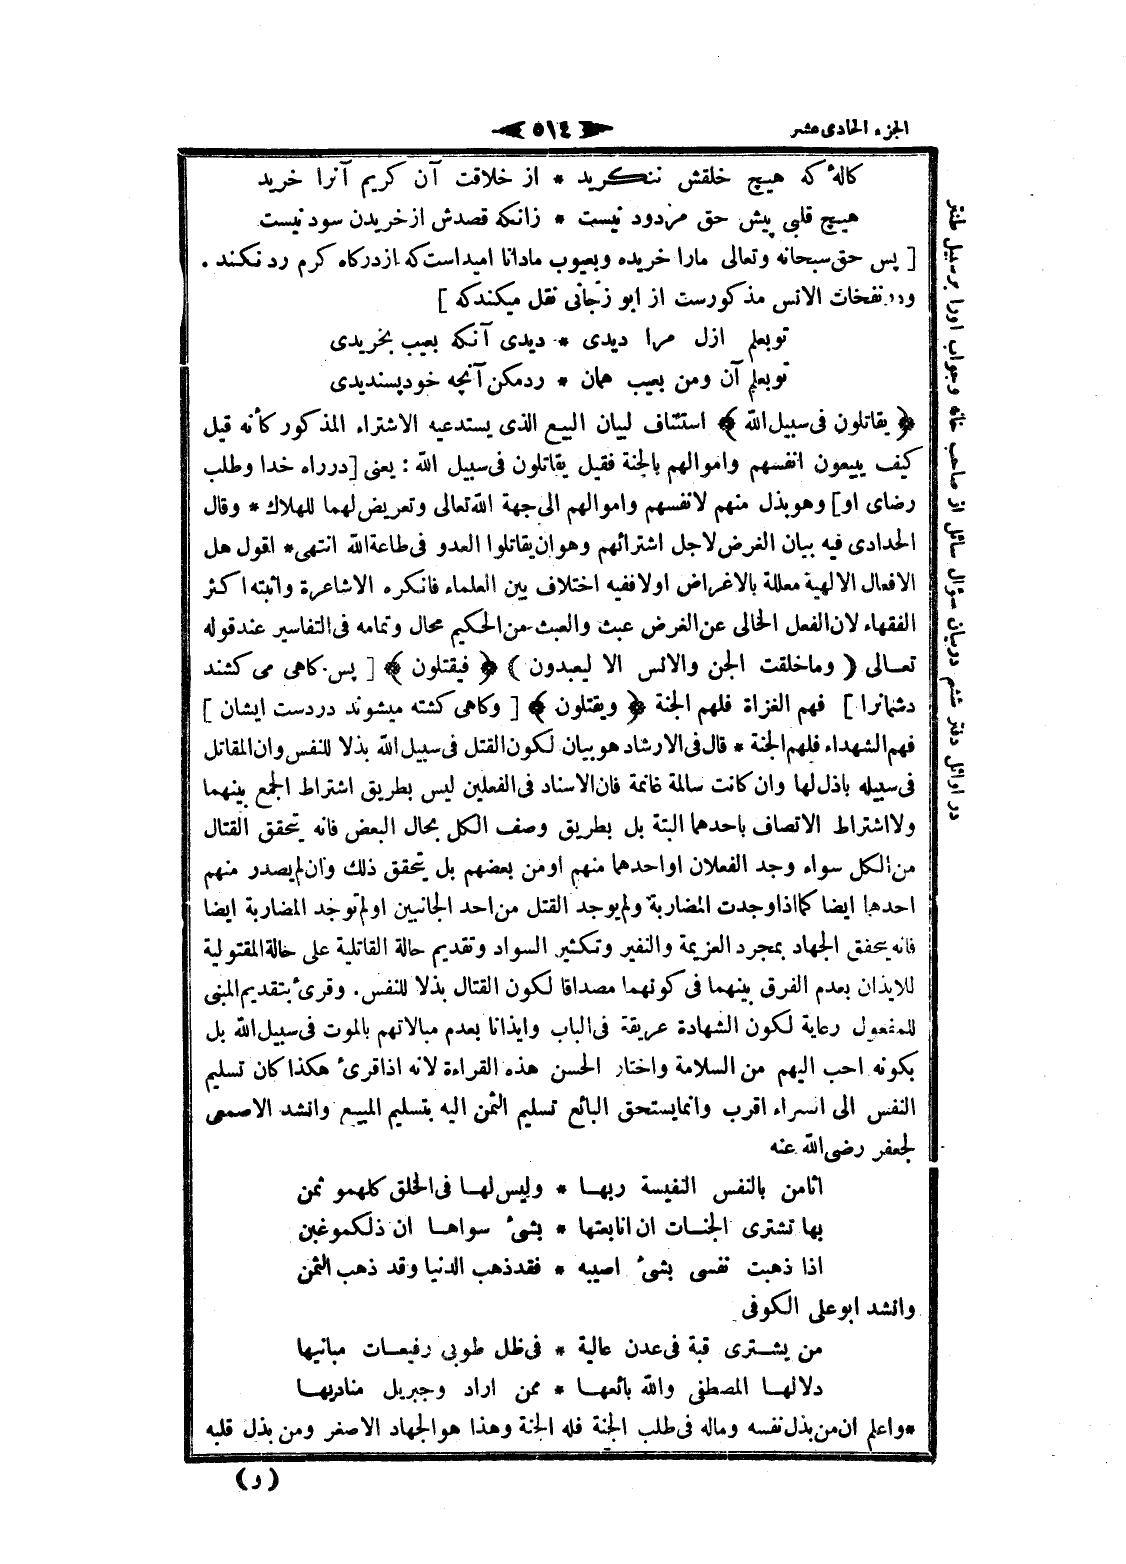 الجزء الحادى عشر
٥١٤
كالهٔ که هیچ خلقش ننگرید * از خلاقت آن کریم آنرا خرید
هیچ قلبی پیش حق مردود نیست * زانکه قصدش از خریدن سود نیست
[ پس حق سبحانه وتعالى مارا خریده وبعیوب مادانا امیداست که ازدرکاه کرم رد نکند .
ودر نفحات الانس مذکورست از ابو زجانى نقل میکندکه ]
توبعلم ازل مرا دیدی * دیدی آنکه بعیب بخریدی
توبعلم آن ومن بعیب همان * ردمکن آنچه خودپسندیدی
﴿ يقاتلون فى سبيل الله ﴾ استئناف لبيان البيع الذى يستدعيه الاشتراء المذكور كأنه قيل
كيف يبيعون انفسهم واموالهم بالجنة فقيل يقاتلون فى سبيل الله : يعنى [درراه خدا وطلب
رضاى او] وهو بذل منهم لانفسهم واموالهم الى جهة الله تعالى وتعريض لهما للهلاك * وقال
الحدادى فيه بيان الغرض لاجل اشترائهم وهو ان يقاتلوا العدو فى طاعة الله انتهى * اقول هل
الافعال الالهية معللة بالاغراض اولا ففيه اختلاف بين العلماء فانكره الاشاعرة واثبته اكثر
الفقهاء لان الفعل الخالى عن الغرض عبث والعبث من الحكيم محال وتمامه فى التفاسير عند قوله
تعالى ( وما خلقت الجن والانس الا ليعبدون ) ﴿ فيقتلون ﴾ [ پس کاهى مى کشند
دشمانرا ] فهم الغزاة فلهم الجنة ﴿ ويقتلون ﴾ [ وکاهى کشته ميشوند دردست ايشان ]
فهم الشهداء فلهم الجنة * قال فى الارشاد هو بيان لكون القتل فى سبيل الله بذلا للنفس وان المقاتل
فى سبيله باذل لها وان كانت سالمة غانمة فان الاسناد فى الفعلين ليس بطريق اشتراط الجمع بينهما
ولا اشتراط الاتصاف باحدهما البتة بل بطريق وصف الكل بحال البعض فانه يتحقق القتال
من الكل سواء وجد الفعلان او احدهما منهم او من بعضهم بل يتحقق ذلك وان لم يصدر منهم
احدهما ايضا كما اذا وجدت المضاربة ولم يوجد القتل من احد الجانبين او لم توجد المضاربة ايضا
فانه يتحقق الجهاد بمجرد العزيمة والنفير وتكثير السواد وتقديم حالة القاتلية على حالة المقتولية
للايذان بعدم الفرق بينهما فى كونهما مصداقا لكون القتال بذلا للنفس . وقرئ بتقديم المبنى
للمفعول رعاية لكون الشهادة عريقة فى الباب وايذانا بعدم مبالاتهم بالموت فى سبيل الله بل
بكونه احب اليهم من السلامة واختار الحسن هذه القراءة لانه اذا قرئ هكذا كان تسليم
النفس الى الشراء اقرب وانما يستحق البائع تسليم الثمن اليه بتسليم المبيع وانشد الاصمعى
لجعفر رضى الله عنه
اثامن بالنفس النفيسة ربها * وليس لها فى الخلق كلهمو ثمن
بها تشترى الجنات ان انابعتها * بشئ سواها ان ذلكمو غبن
اذا ذهبت نفسى بشئ اصيبه * فقد ذهب الدنيا وقد ذهب الثمن
وانشد ابو على الكوفى
من يشترى قبة فى عدن عالية * فى ظل طوبى رفيعات مبانيها
دلالها المصطفى والله بائعها * ممن اراد وجبريل مناديها
* واعلم ان من بذل نفسه وماله فى طلب الجنة فله الجنة وهذا هو الجهاد الاصغر ومن بذل قلبه
( و )
در اوائل دفتر ششم دربيان سؤال سائل از صاحب خانه وجواب اورا بر سبيل طنز